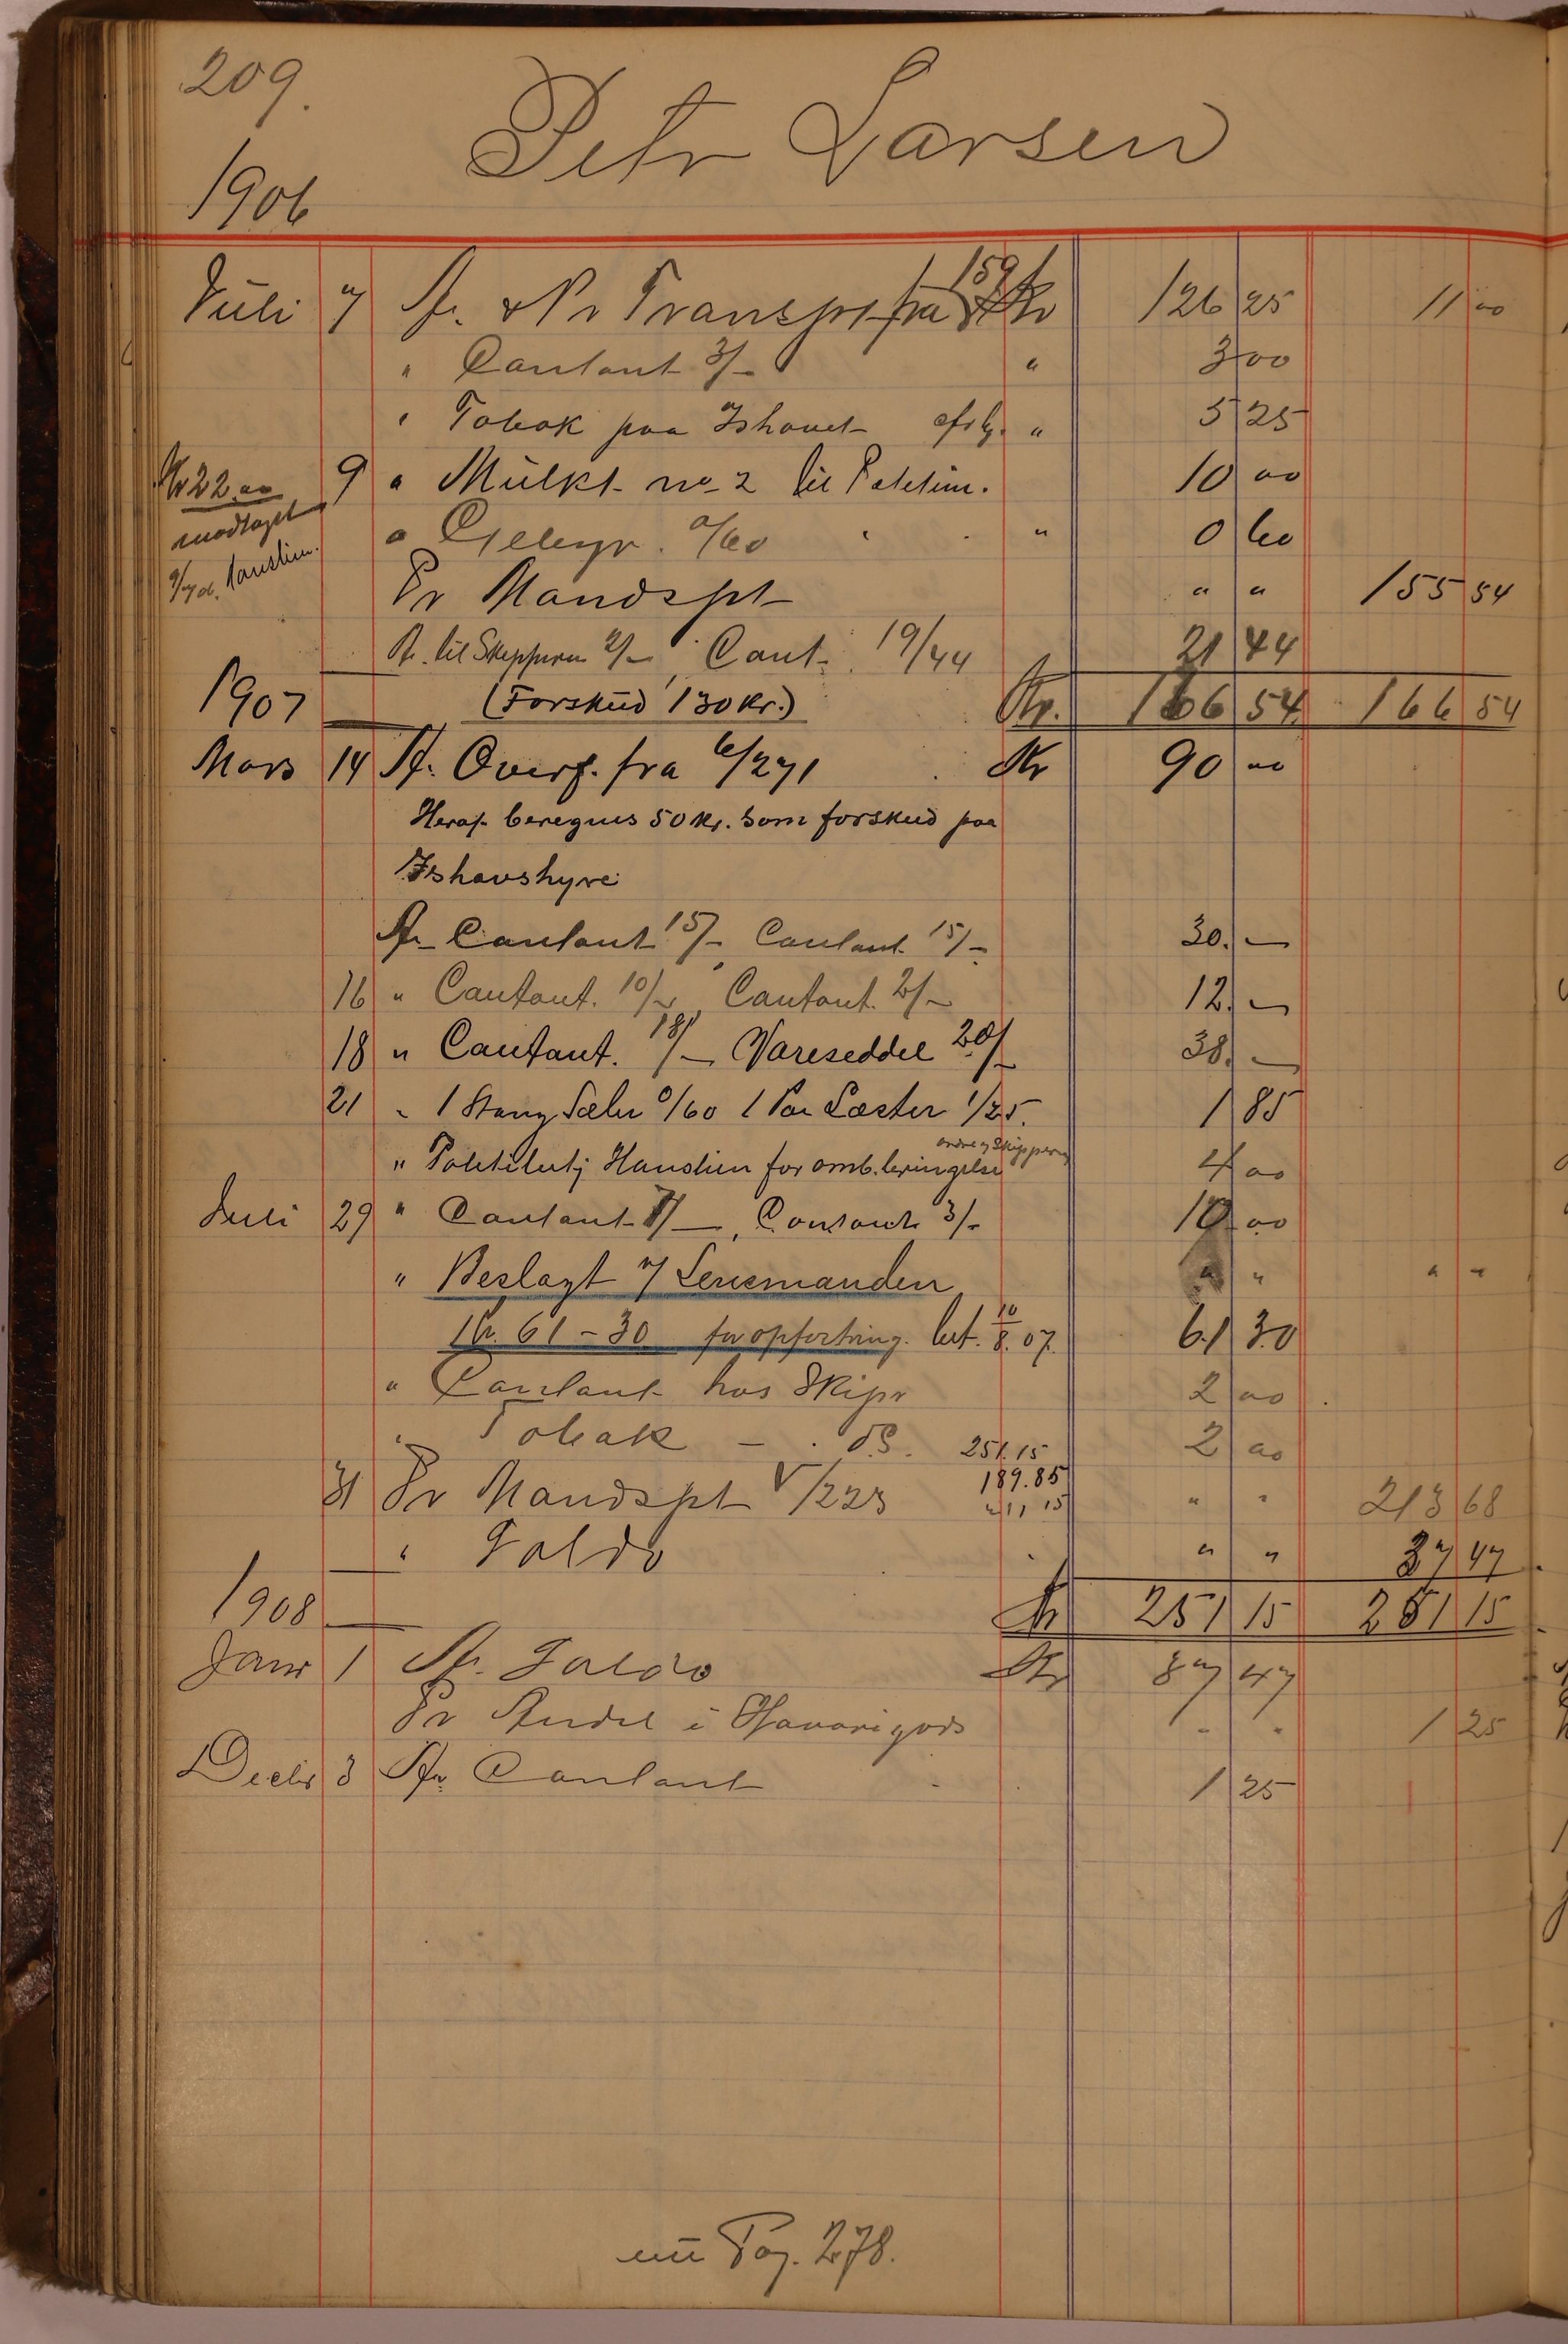 209.
Petr Larsen
1906
Juli 7 Ar. & Pr Transprt fra 159/ Kr 126 25 11 00
" Contant 3/- " 3 00
" Tobak paa Ishavet " 5 25
9 " Mülkt no 2 til Politim. 10 00
Kr 22.00
modtaget
" Gebyr. 0/60 " 0 60
Pr Mandspt " " 155 54
Ar. til Skipperen 2/- , Cont. 19/44 21 44
1907 (Forskud 130 Kr.) Kr. 166 54 166 54
Mars 14 Ar. Overf. fra 6/271 Kr 90 00
Heraf beregnes 50 Kr. som forskud paa
Ishavshyre
Ar Contant 15/-, Contant 15/- 30. —
16 " Contant. 10/-, Contant. 2/- 12. —
18 " Contant. 18/- Vareseddel 20/- 38. —
21 " 1 Stang Sæbe 0/60 1 Par Læster 1/25. 1 85
" Politibetj Hanslien for omb. bringelse 4 00
Juli 29 " Contant 7/—, Contant 3/- 10 00
" Beslagt v/ Lensmanden " " " "
Kr. 61-30 bet. 10/8. 07. 61 30
" Contant hos Skipr 2 00
" Tobak — . do. 2 00
251.15
189.85
31 Pr Mandspt V/223 " " 213 68
" Saldo " " 37 47
1908 Kr 251 15 251 15
Janr 1 Ar. Saldo Kr 37 47
Pr Andel i Havarigods " " 1 25
Decbr 3 Ar Contant 1 25
nü Pag. 278.